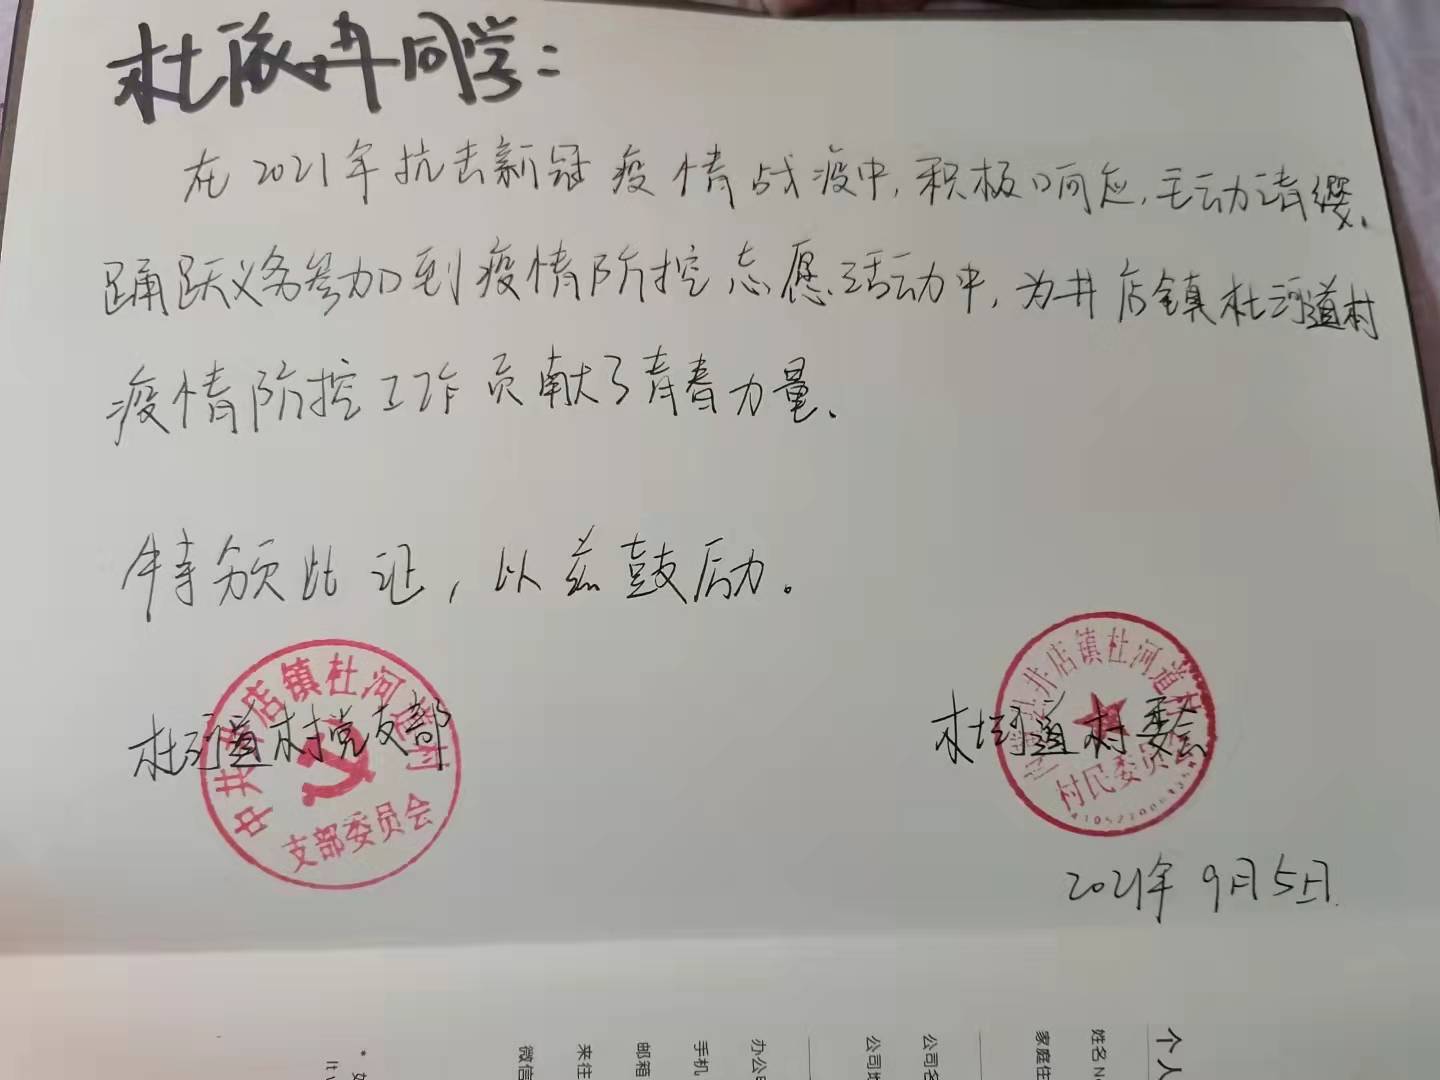 杜依卉同学：
在2021年抗击新冠疫情战疫中，积极响应，主动请缨，
踊跃义务参加到疫情防控志愿活动中，为井店镇杜河道村
疫情防控工作贡献了青春力量。
特颁此证，以兹鼓励。
杜河道村党支部
杜河道村委会
2021年9月5日
中共井店镇杜河道村
支部委员会
井店镇杜河道村
村民委员会
个人
姓名
家庭住
公司名
公司地
办公电
手机
邮箱
来往
微信